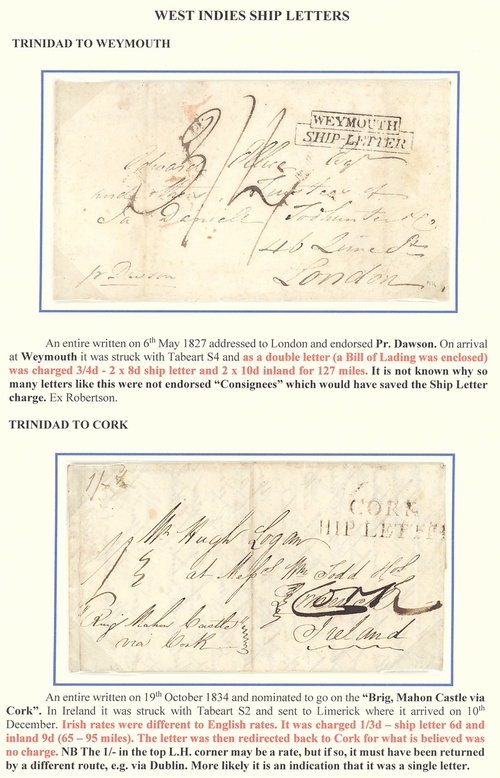 WEST INDIES SHIP LETTERS
TRINIDAD TO WEYMOUTH
WEYMOUTH
SHIP-LETTER
Edward Ellice Esqr
and others Trustees of
Jas Daniell Todhunter & Co
3/4
46 Lime St
London
pr Dawson
An entire written on 6th May 1827 addressed to London and endorsed Pr. Dawson. On arrival
at Weymouth it was struck with Tabeart S4 and as a double letter (a Bill of Lading was enclosed)
was charged 3/4d - 2 x 8d ship letter and 2 x 10d inland for 127 miles. It is not known why so
many letters like this were not endorsed “Consignees” which would have saved the Ship Letter
charge. Ex Robertson.
TRINIDAD TO CORK
1/-
CORK
HIP LETTER
Mr Hugh Logan
at Messrs Wm Todd &
1/3
Cork
"Brig Mahon Castle"
via Cork
Ireland
An entire written on 19th October 1834 and nominated to go on the “Brig, Mahon Castle via
Cork”. In Ireland it was struck with Tabeart S2 and sent to Limerick where it arrived on 10th
December. Irish rates were different to English rates. It was charged 1/3d – ship letter 6d and
inland 9d (65 – 95 miles). The letter was then redirected back to Cork for what is believed was
no charge. NB The 1/- in the top L.H. corner may be a rate, but if so, it must have been returned
by a different route, e.g. via Dublin. More likely it is an indication that it was a single letter.